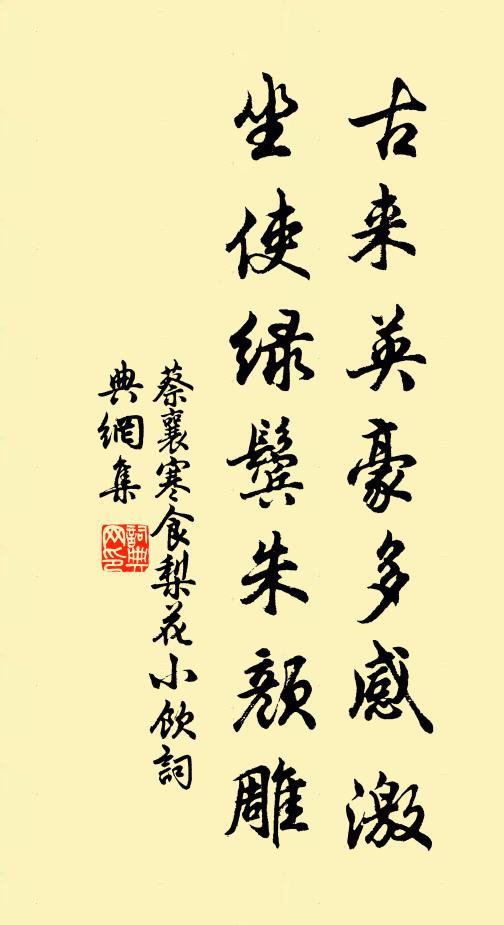 古来英豪多感激
坐使绿鬓朱颜雕
蔡襄寒食梨花小饮詞
典網集
詞典
网印